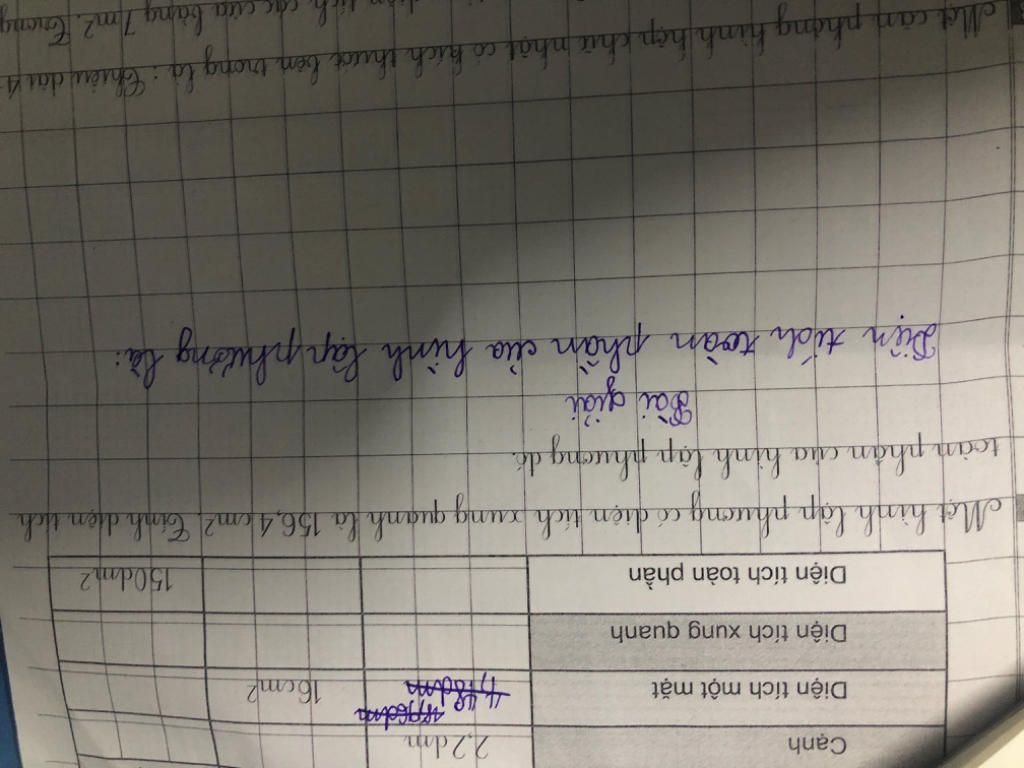 Cạnh 2,2dm
Diện tích một mặt 16cm²
Diện tích xung quanh
Diện tích toàn phần 150dm²
Một hình lập phương có diện tích xung quanh là 156,4cm². Tính diện tích
toàn phần của hình lập phương đó.
Bài giải
Diện tích toàn phần của hình lập phương là:
Một căn phòng hình hộp chữ nhật có kích thước bên trong là: Chiều dài 4
diện tích các cửa bằng 7m². Trong